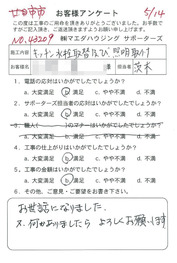 廿日市市 お客様アンケート 5/14
この度は工事のご用命を頂きありがとうございました。お手数ですがご記入頂き、ご返送頂きますようお願い申し上げます。
No.43209 ㈱マエダハウジング サポーターズ
施工内容 キッチン水栓取替及び照明取付
担当者 茨木
1. 電話の応対はいかがでしたでしょうか?
a.大変満足 b.満足 c.やや不満 d.不満
2. サポーターズ担当者の応対はいかがでしたでしょうか?
a.大変満足 b.満足 c.やや不満 d.不満
a.大変満足 b.満足 c.やや不満 d.不満
4. 工事の仕上がりはいかがでしたでしょうか?
a.大変満足 b.満足 c.やや不満 d.不満
5. 工事の金額はいかがでしたでしょうか?
a.大変満足 b.満足 c.やや不満 d.不満
6. その他、ご意見・ご要望をお書き下さい。
お世話になりました。
又、何かありましたら よろしくお願いします